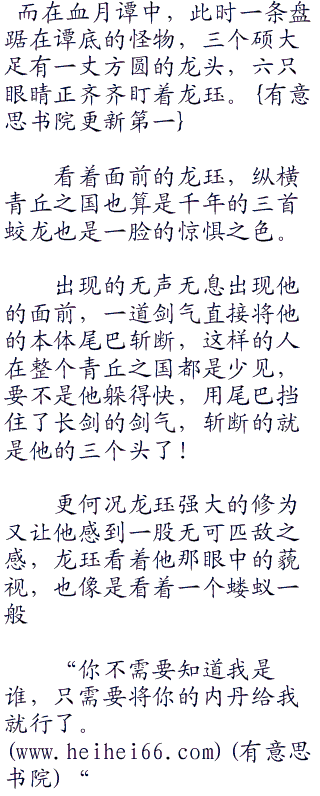 而在血月谭中，此时一条盘
踞在谭底的怪物，三个硕大
足有一丈方圆的龙头，六只
眼睛正齐齐盯着龙珏。{有意
思书院更新第一}
看着面前的龙珏，纵横
青丘之国也算是千年的三首
蛟龙也是一脸的惊惧之色。
出现的无声无息出现他
的面前，一道剑气直接将他
的本体尾巴斩断，这样的人
在整个青丘之国都是少见，
要不是他躲得快，用尾巴挡
住了长剑的剑气，斩断的就
是他的三个头了！
更何况龙珏强大的修为
又让他感到一股无可匹敌之
感，龙珏看着他那眼中的藐
视，也像是看着一个蝼蚁一
般
“你不需要知道我是
谁，只需要将你的内丹给我
就行了。
(www.heihei66.com)(有意思
书院) “